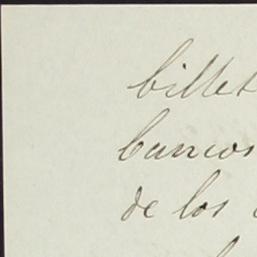 billet
bancos
de los